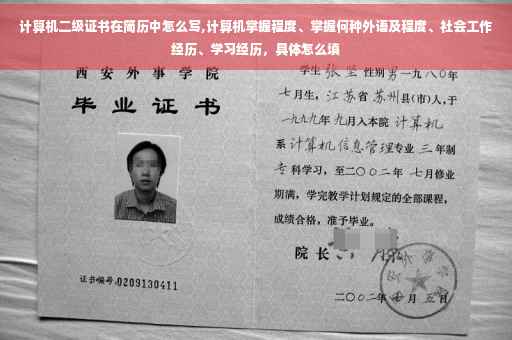 计算机二级证书在简历中怎么写,计算机掌握程度、掌握何种外语及程度、社会工作
经历、学习经历，具体怎么填
西安外事学院
毕业证书
证书编号:0209130411
学生张坚性别男一九八〇年
七月生，江苏省苏州县(市)人,于
一九九九年九月入本院计算机
系计算机信息管理专业三年制
专科学习，至二〇〇二年七月修业
期满，学完教学计划规定的全部课程，
成绩合格，准予毕业。
院长
二〇〇二年七月五日